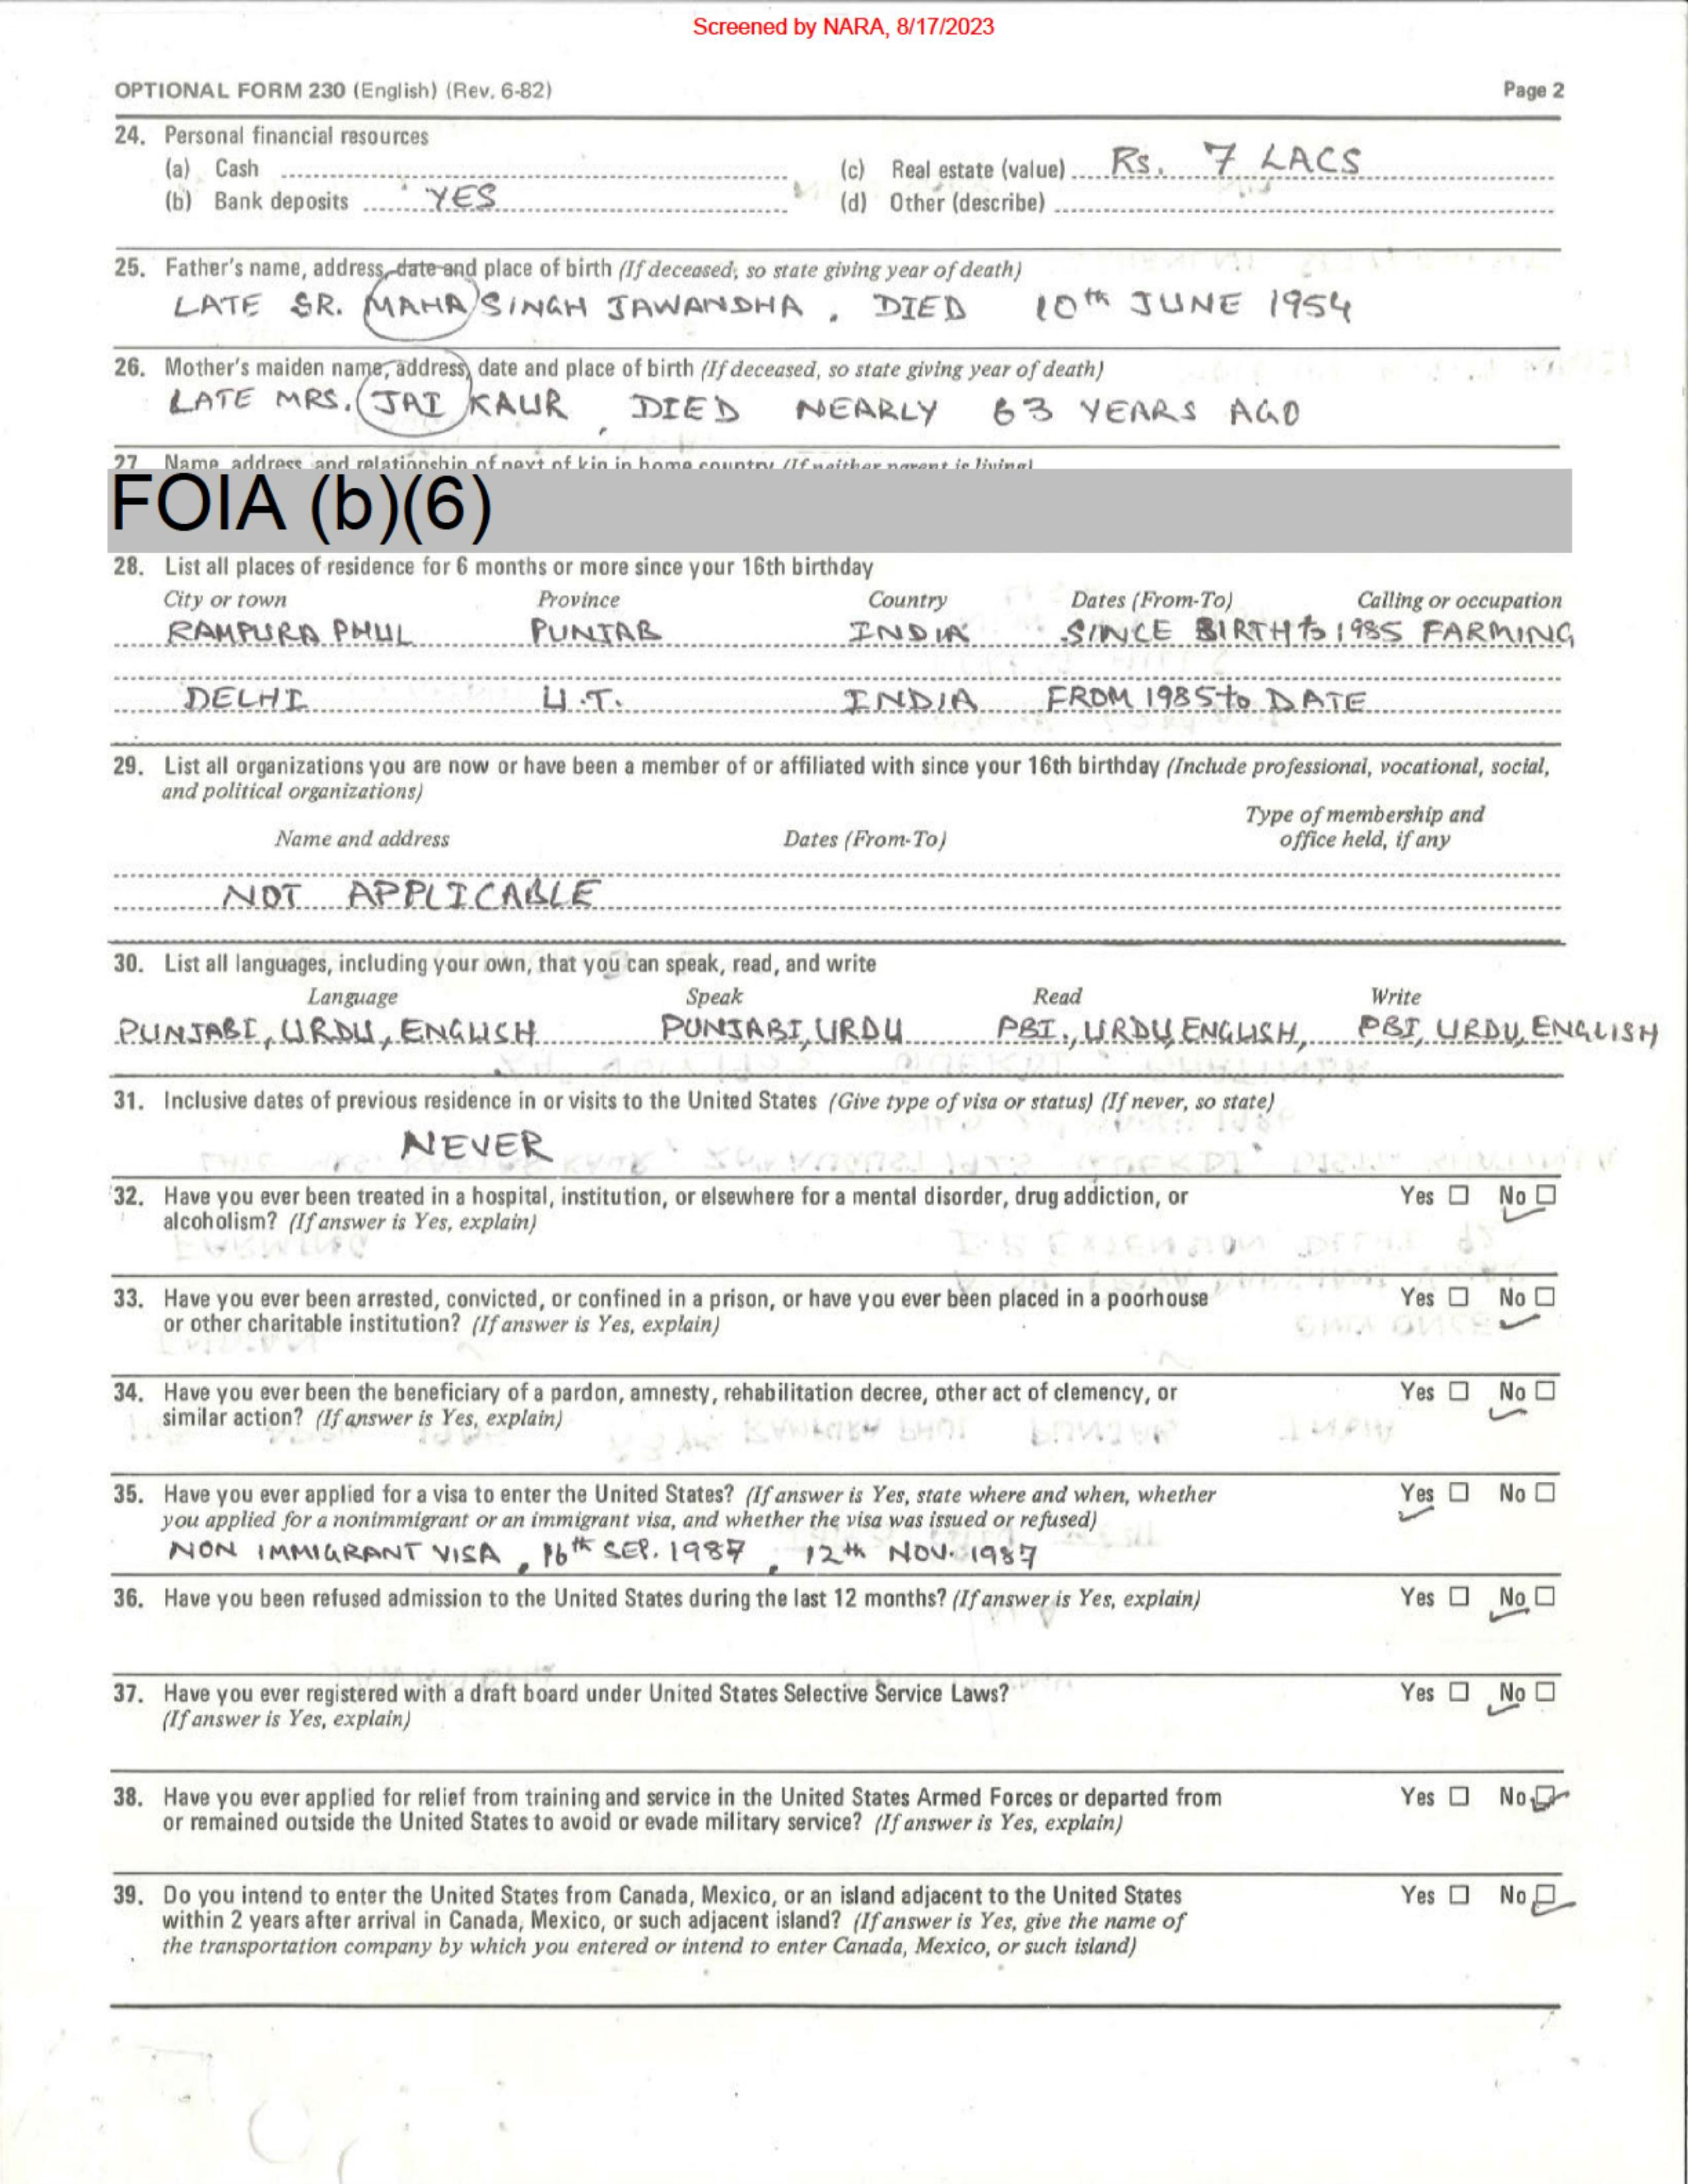 Screened by NARA, 8/17/2023
OPTIONAL FORM 230 (English) (Rev. 6-82) Page 2
24. Personal financial resources
(a) Cash (c) Real estate (value) Rs. 7 LACS
(b) Bank deposits YES (d) Other (describe)
25. Father's name, address, date and place of birth (If deceased, so state giving year of death)
LATE SR. MAHA SINGH JAWANDHA . DIED 10th JUNE 1954
26. Mother's maiden name, address, date and place of birth (If deceased, so state giving year of death)
LATE MRS. JAI KAUR , DIED NEARLY 63 YEARS AGO
27 Name, address, and relationship of next of kin in home country (If neither parent is living)
FOIA (b)(6)
28. List all places of residence for 6 months or more since your 16th birthday
City or town Province Country Dates (From-To) Calling or occupation
RAMPURA PHUL PUNJAB INDIA SINCE BIRTH to 1985 FARMING
DELHI U.T. INDIA FROM 1985 to DATE
29. List all organizations you are now or have been a member of or affiliated with since your 16th birthday (Include professional, vocational, social,
and political organizations)
Type of membership and
Name and address Dates (From-To) office held, if any
NOT APPLICABLE
30. List all languages, including your own, that you can speak, read, and write
Language Speak Read Write
PUNJABI, URDU, ENGLISH PUNJABI, URDU PBI., URDU, ENGLISH, PBI, URDU, ENGLISH
31. Inclusive dates of previous residence in or visits to the United States (Give type of visa or status) (If never, so state)
NEVER
32. Have you ever been treated in a hospital, institution, or elsewhere for a mental disorder, drug addiction, or Yes No
alcoholism? (If answer is Yes, explain)
33. Have you ever been arrested, convicted, or confined in a prison, or have you ever been placed in a poorhouse Yes No
or other charitable institution? (If answer is Yes, explain)
34. Have you ever been the beneficiary of a pardon, amnesty, rehabilitation decree, other act of clemency, or Yes No
similar action? (If answer is Yes, explain)
35. Have you ever applied for a visa to enter the United States? (If answer is Yes, state where and when, whether Yes No
you applied for a nonimmigrant or an immigrant visa, and whether the visa was issued or refused)
NON IMMIGRANT VISA , 16th SEP. 1987 , 12th NOV. 1987
36. Have you been refused admission to the United States during the last 12 months? (If answer is Yes, explain) Yes No
37. Have you ever registered with a draft board under United States Selective Service Laws? Yes No
(If answer is Yes, explain)
38. Have you ever applied for relief from training and service in the United States Armed Forces or departed from Yes No
or remained outside the United States to avoid or evade military service? (If answer is Yes, explain)
39. Do you intend to enter the United States from Canada, Mexico, or an island adjacent to the United States Yes No
within 2 years after arrival in Canada, Mexico, or such adjacent island? (If answer is Yes, give the name of
the transportation company by which you entered or intend to enter Canada, Mexico, or such island)